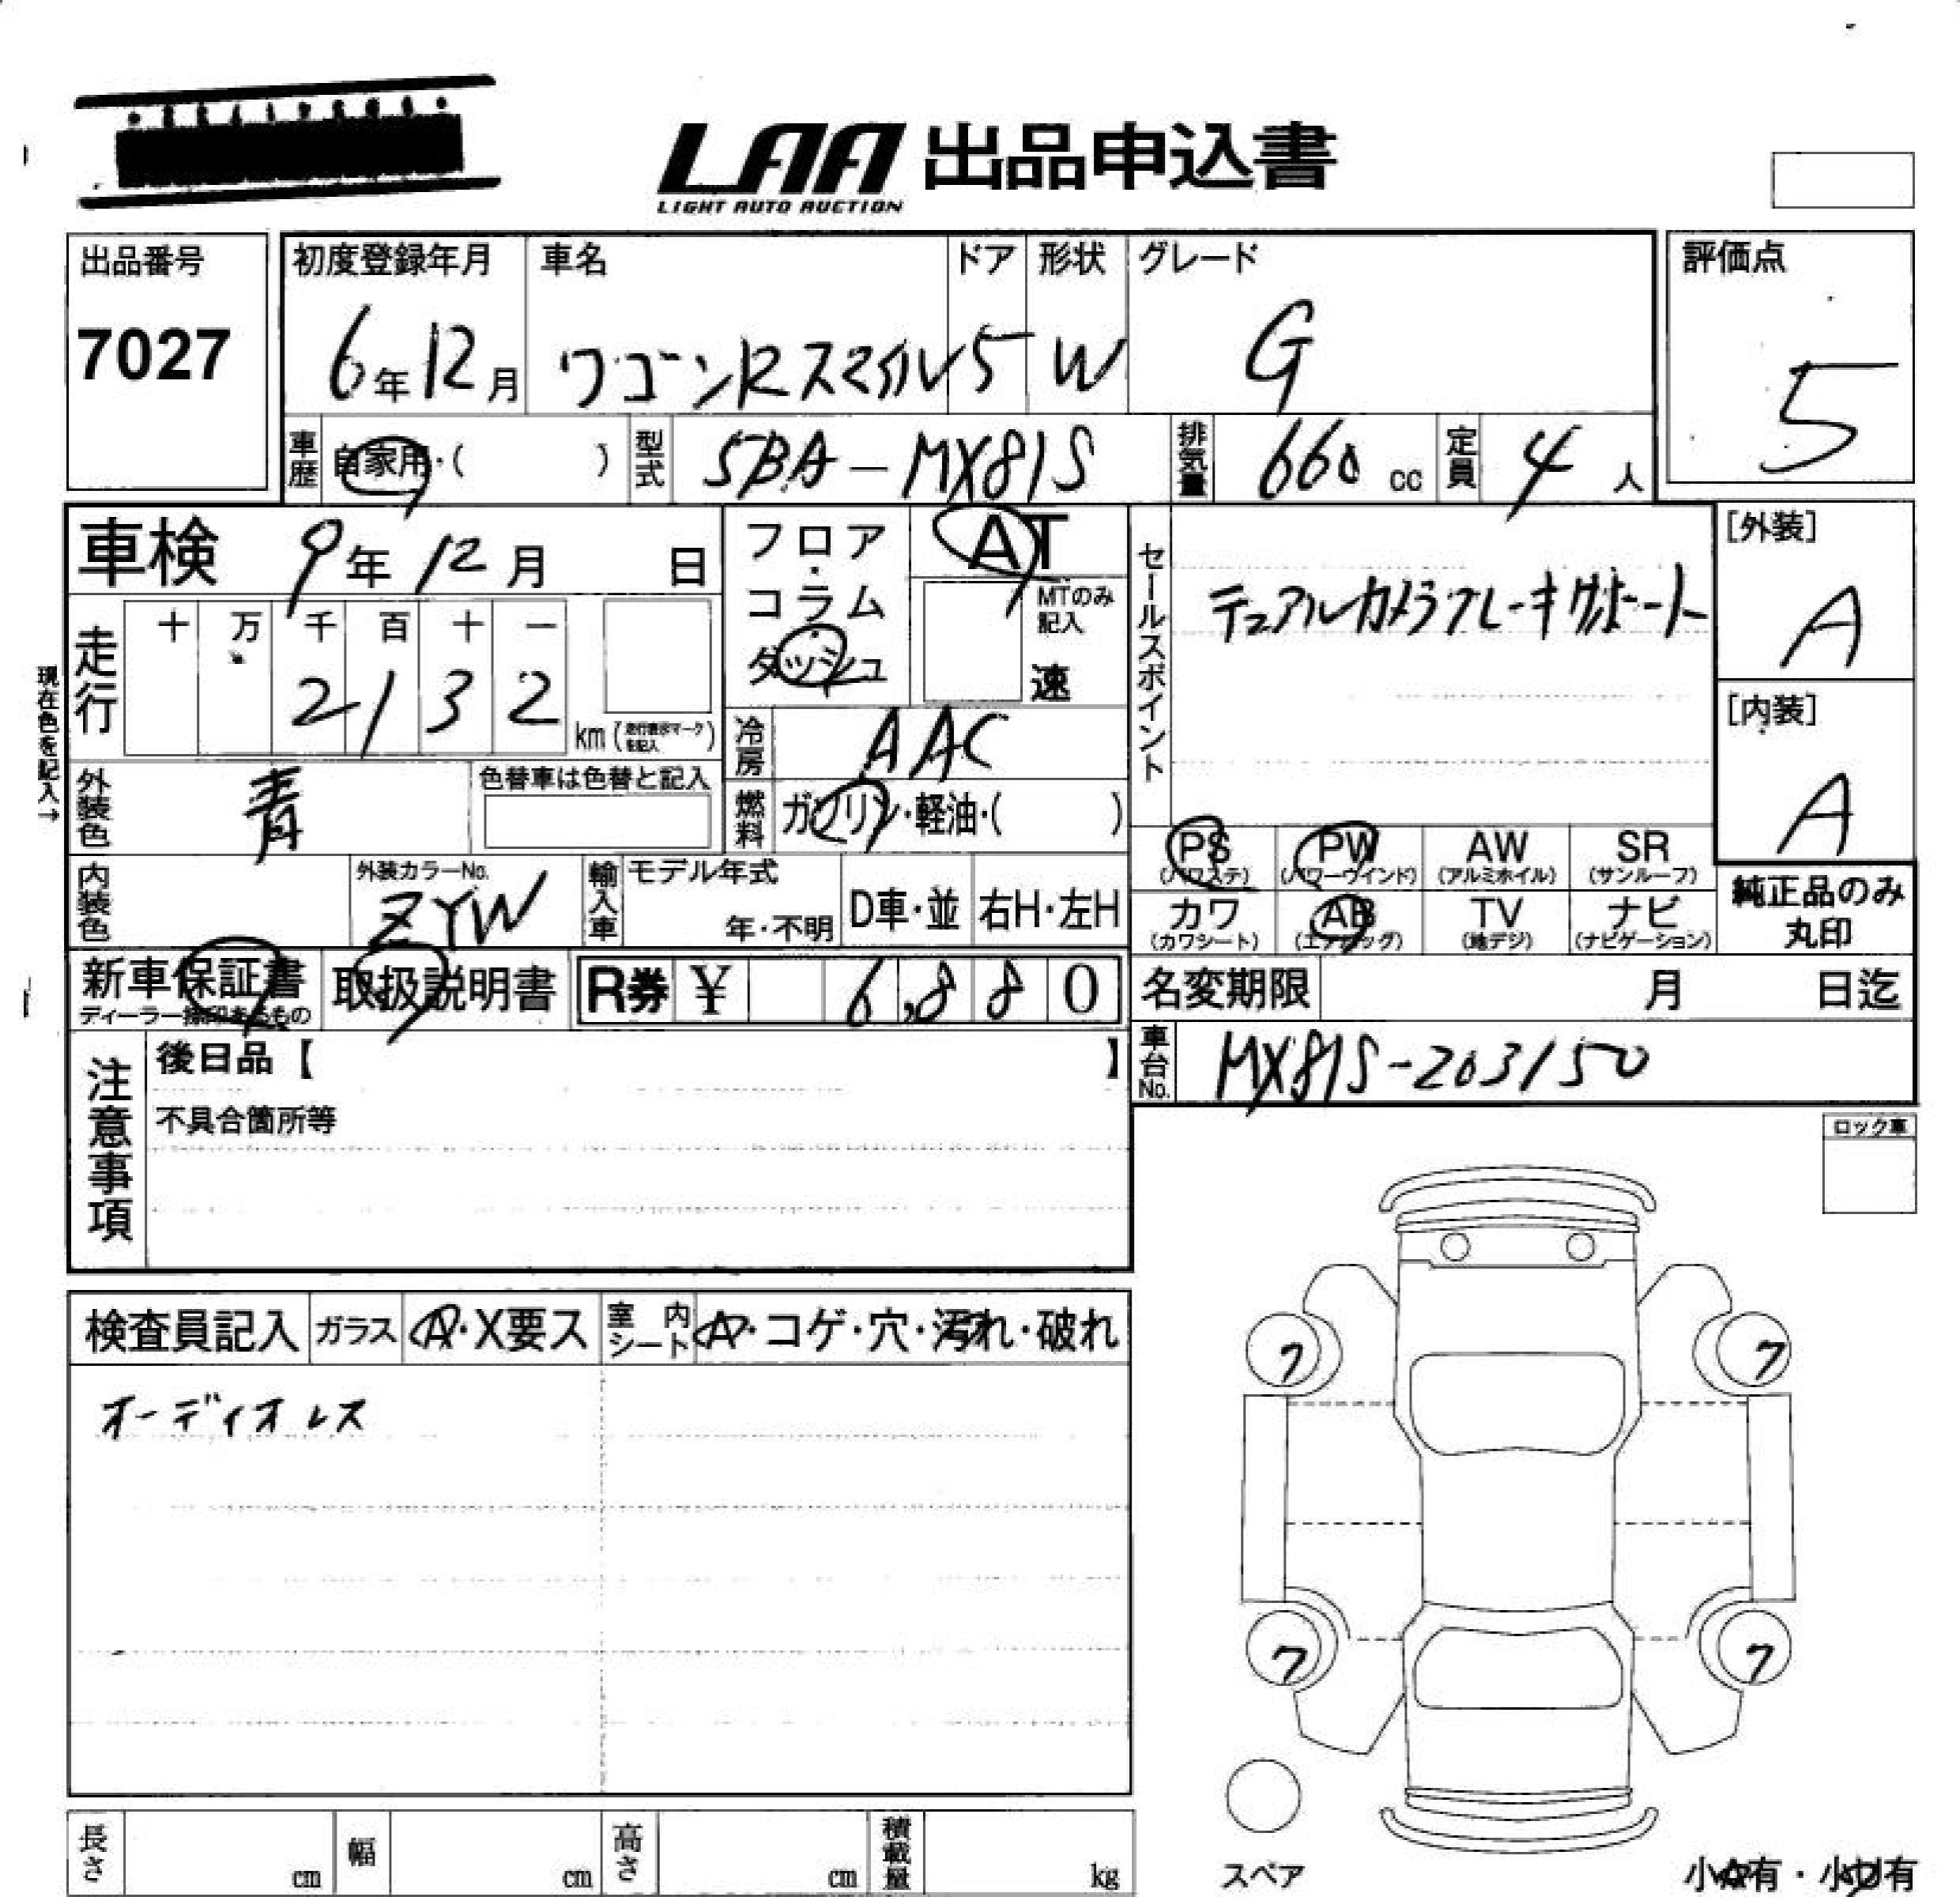 LAA 出品申込書
LIGHT AUTO AUCTION
出品番号
7027
初度登録年月
6年12月
車名
ワゴンRスマイル
ドア
5
形状
W
グレード
G
評価点
5
車歴
自家用・( )
型式
5BA-MX81S
排気量
660 cc
定員
4 人
車検
9年12月 日
フロア・コラム・ダッシュ
AT
MTのみ記入
速
セールスポイント
デュアルカメラブレーキサポート
[外装]
A
[内装]
A
現在色を記入→
走行
十 万 千 百 十 一
2 1 3 2
km (走行表示マークを記入)
冷房
AAC
外装色
青
色替車は色替と記入
燃料
ガソリン・軽油・( )
PS (パワステ)
PW (パワーウインド)
AW (アルミホイル)
SR (サンルーフ)
カワ (カワシート)
AB (エアバッグ)
TV (地デジ)
ナビ (ナビゲーション)
純正品のみ
丸印
内装色
外装カラーNo.
ZYW
輸入車
モデル年式
年・不明
D車・並
右H・左H
新車保証書
ディーラー捺印あるもの
取扱説明書
R券 ¥ 6,880
名変期限 月 日迄
車台No.
MX81S-203150
注意事項
後日品【 】
不具合箇所等
ロック車
検査員記入
ガラス
A・X要ス
室内シート
A・コゲ・穴・汚れ・破れ
オーディオレス
7
7
7
7
スペア
小A有・小U有
長さ cm
幅 cm
高さ cm
積載量 kg